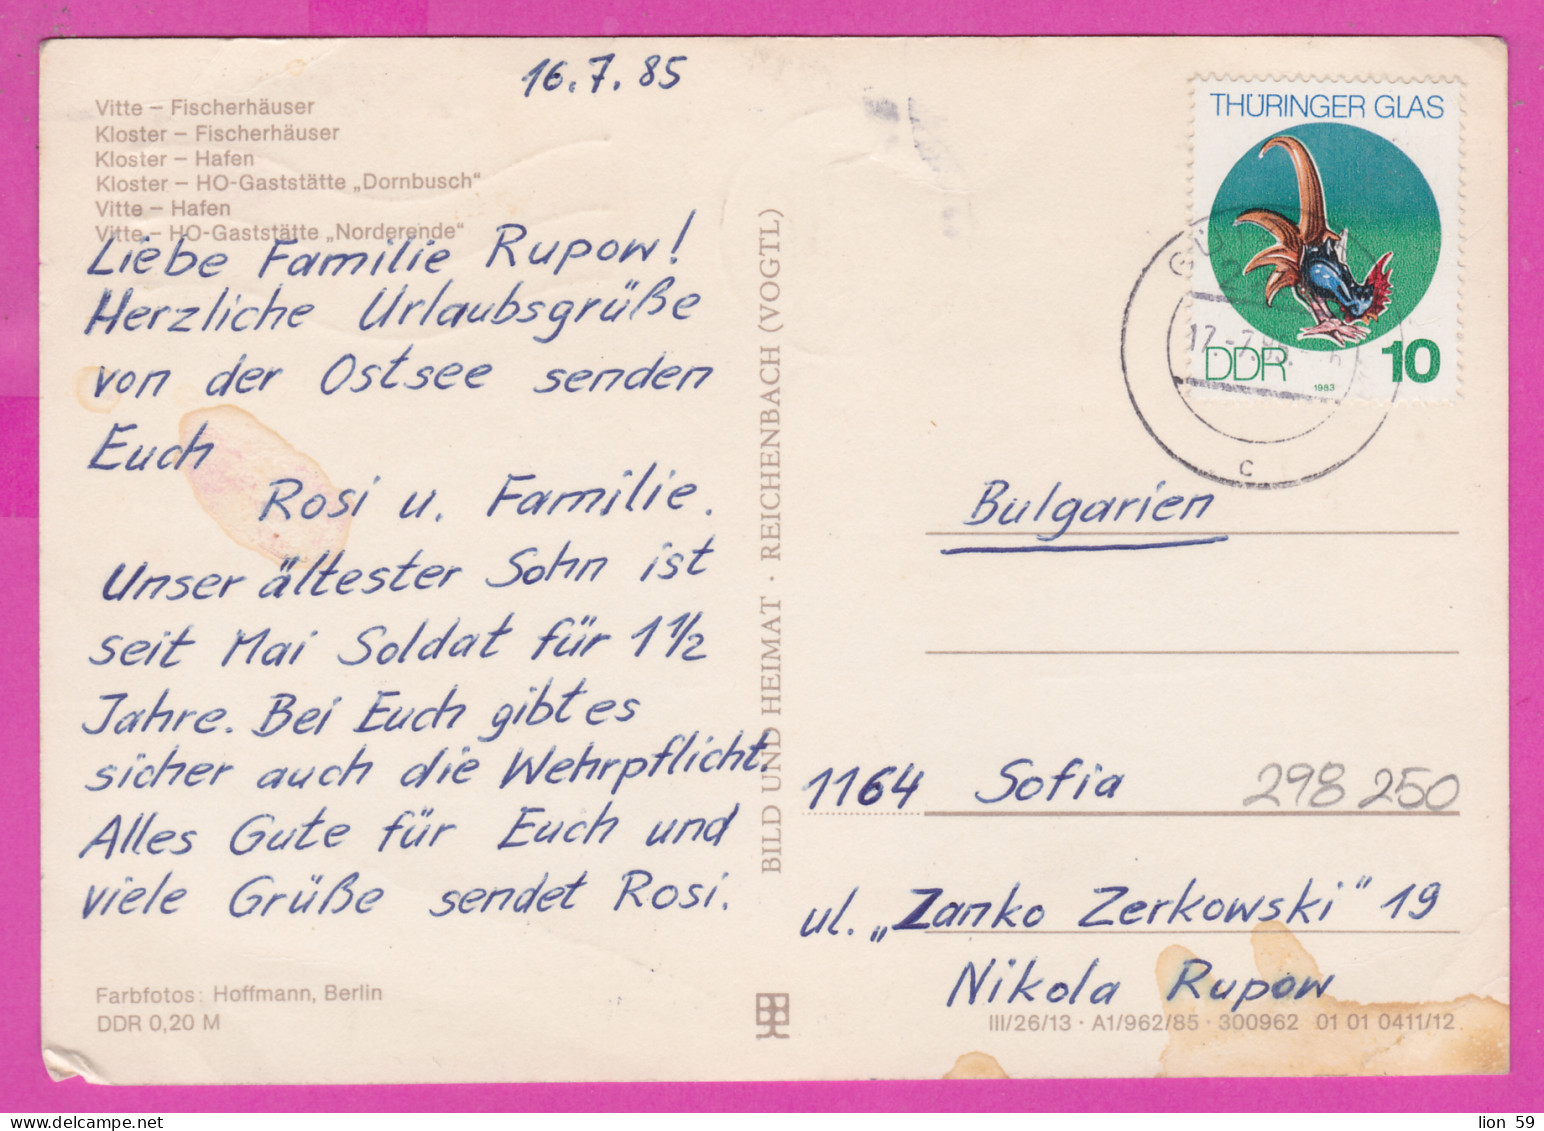 16.7.85
Vitte – Fischerhäuser
Kloster – Fischerhäuser
Kloster – Hafen
Kloster – HO-Gaststätte „Dornbusch“
Vitte – Hafen
Vitte – HO-Gaststätte „Norderende“
Liebe Familie Rupow!
Herzliche Urlaubsgrüße
von der Ostsee senden
Euch
Rosi u. Familie.
Unser ältester Sohn ist
seit Mai Soldat für 1 1/2
Jahre. Bei Euch gibt es
sicher auch die Wehrpflicht.
Alles Gute für Euch und
viele Grüße sendet Rosi.
Farbfotos: Hoffmann, Berlin
DDR 0,20 M
BILD UND HEIMAT · REICHENBACH (VOGTL)
THÜRINGER GLAS
DDR
1983
10
c
Bulgarien
1164 Sofia
298 250
ul. „Zanko Zerkowski“ 19
Nikola Rupow
III/26/13 · A1/962/85 · 300962 01 01 0411/12
lion 59